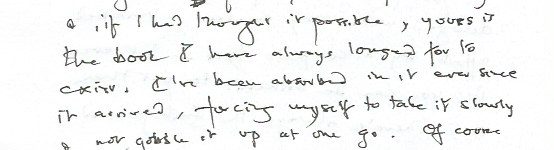 , if I had thought it possible, yours is
the book I have always longed for to
exist. I've been absorbed in it ever since
it arrived, forcing myself to take it slowly
& not gobble it up at one go. Of course